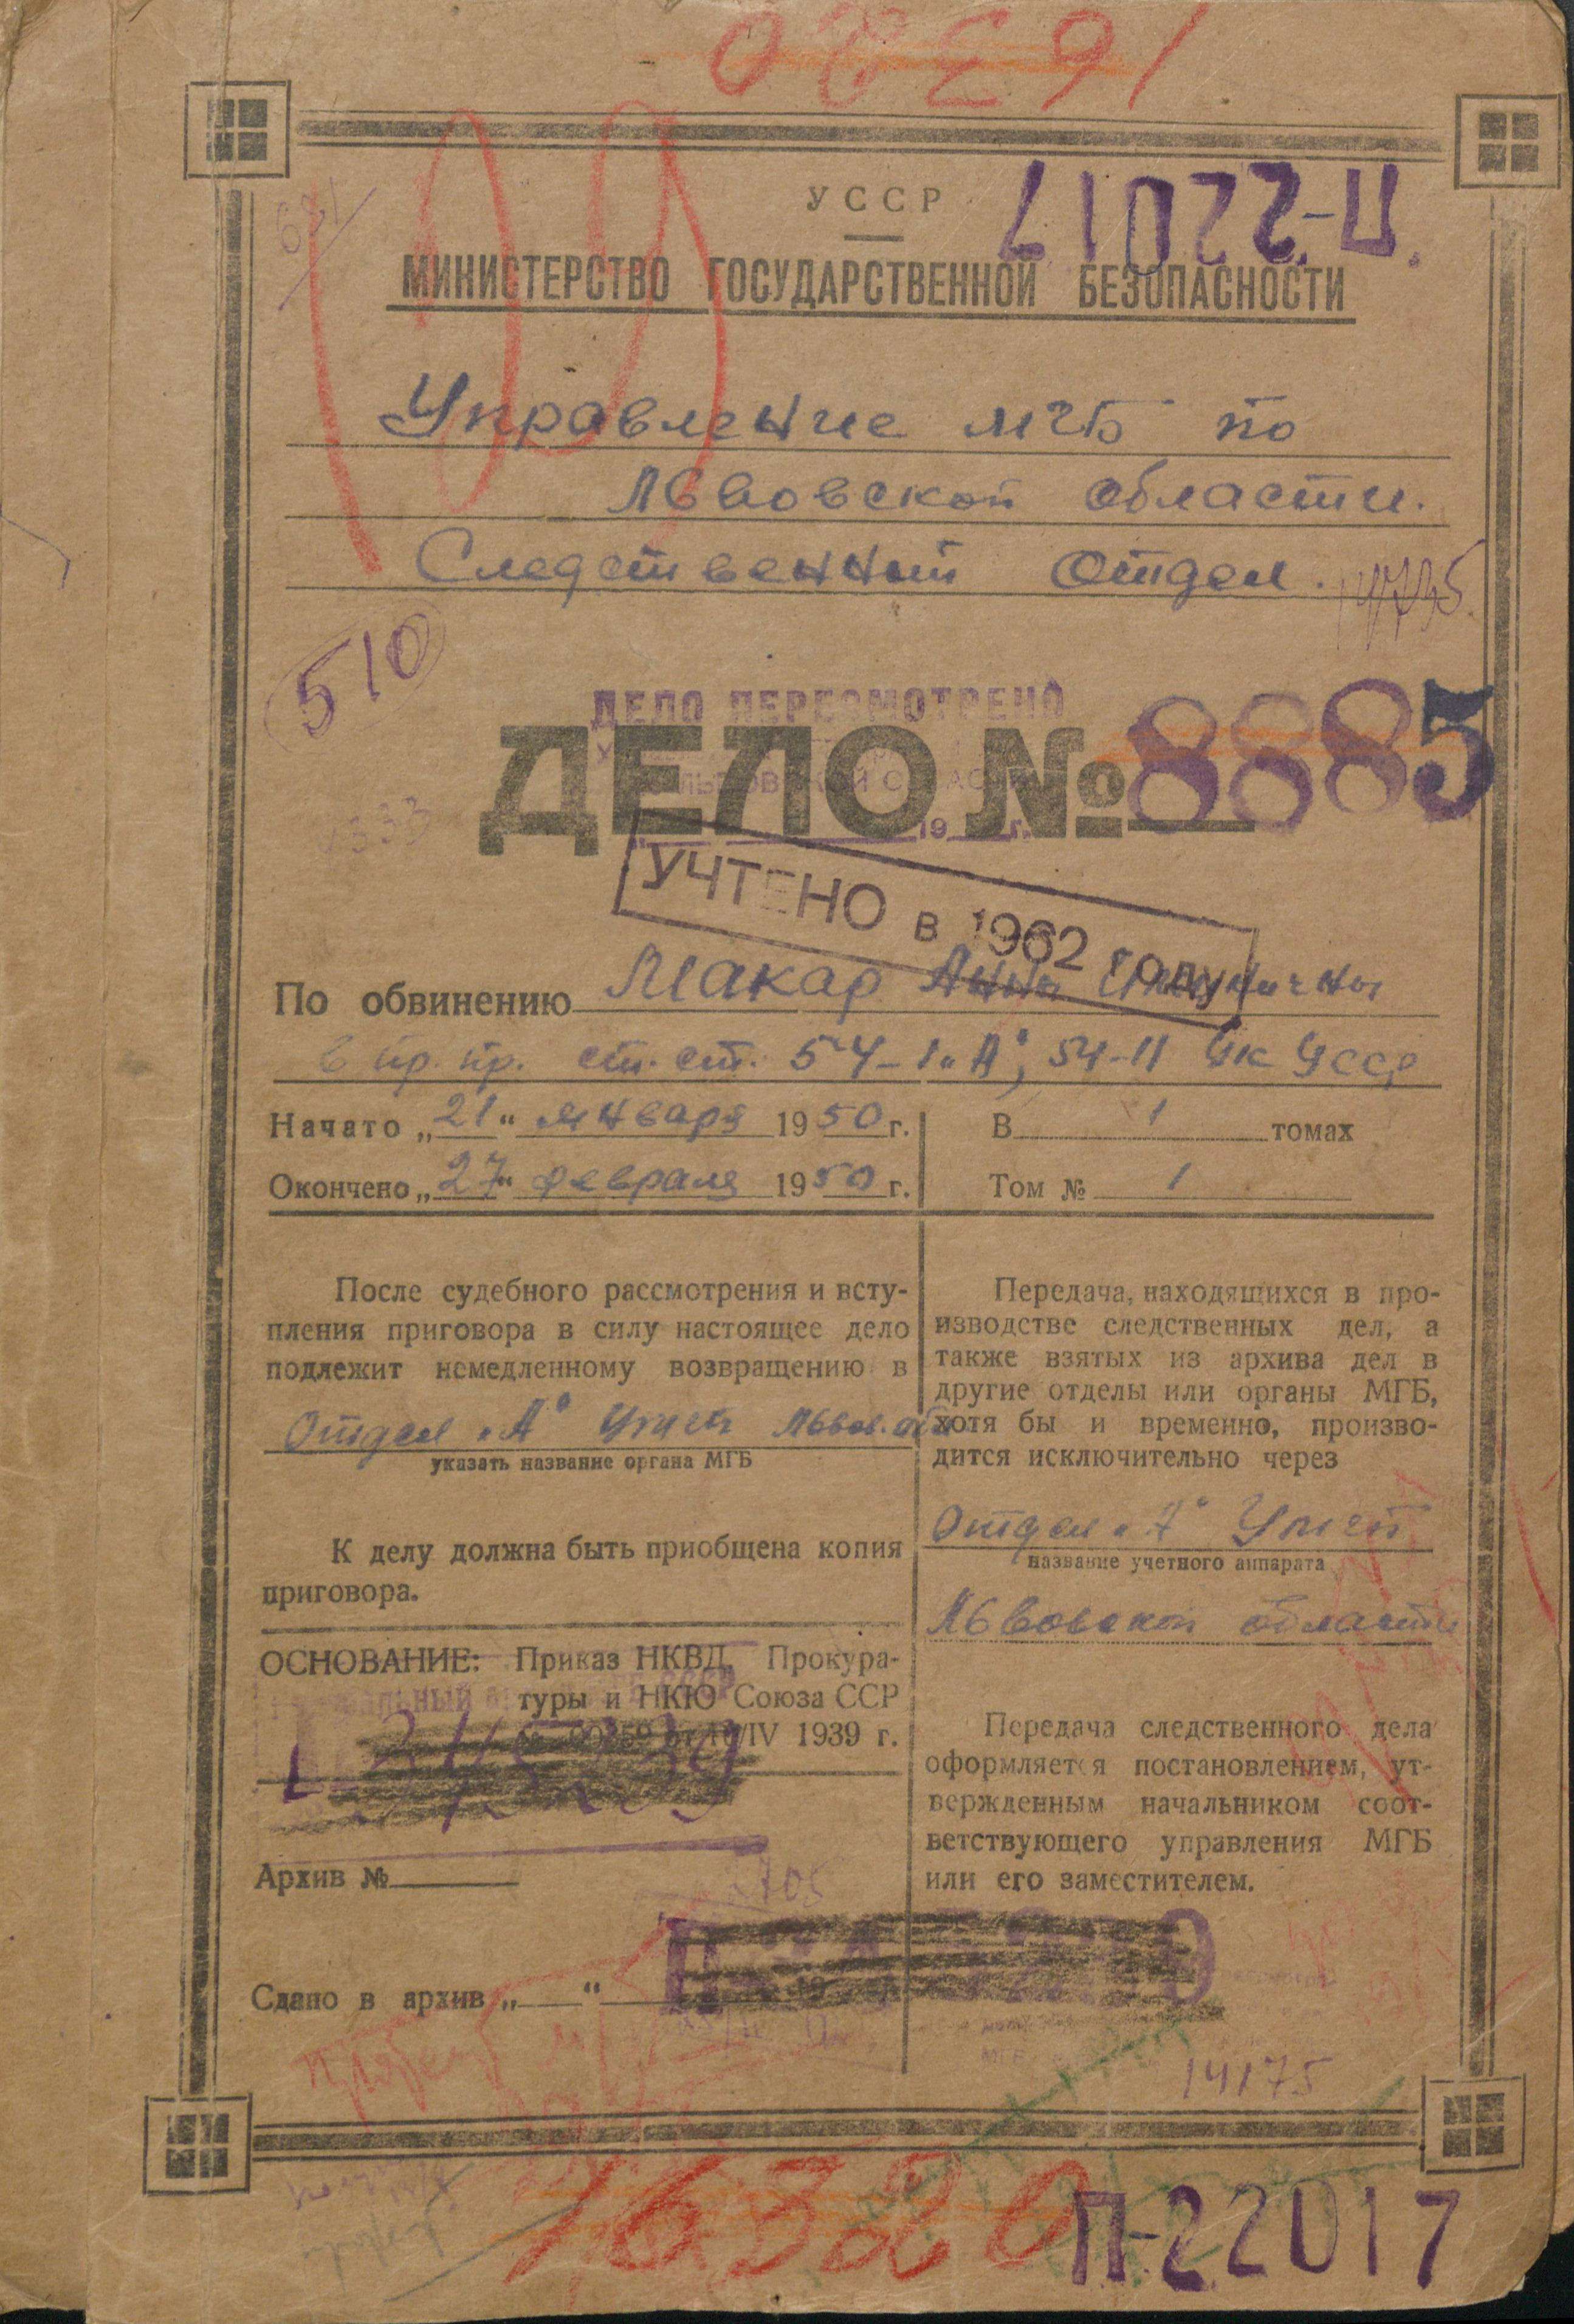 16320
УССР
П-22017
МИНИСТЕРСТВО ГОСУДАРСТВЕННОЙ БЕЗОПАСНОСТИ
Управление МГБ по
Львовской области.
Следственный Отдел.
510
ДЕЛО ПЕРЕСМОТРЕНО
ДЕЛО № 8885
19 г.
УЧТЕНО в 1962 году
По обвинению Макар Анны
в пр. пр. ст. ст. 54-1 „А", 54-11 УК УССР
Начато „21" января 1950 г.
В 1 томах
Окончено „27" февраля 1950 г.
Том № 1
После судебного рассмотрения и всту-
пления приговора в силу настоящее дело
подлежит немедленному возвращению в
Отдел „А" УМГБ Львов. обл.
указать название органа МГБ
К делу должна быть приобщена копия
приговора.
ОСНОВАНИЕ: Приказ НКВД, Прокура-
туры и НКЮ Союза ССР
№ 00359 от 16/IV 1939 г.
Архив №
Сдано в архив „ " 19
Передача, находящихся в про-
изводстве следственных дел, а
также взятых из архива дел в
другие отделы или органы МГБ,
хотя бы и временно, произво-
дится исключительно через
Отдел „А" УМГБ
название учетного аппарата
Львовской области
Передача следственного дела
оформляется постановлением, ут-
вержденным начальником соот-
ветствующего управления МГБ
или его заместителем.
14175
16320
П-22017